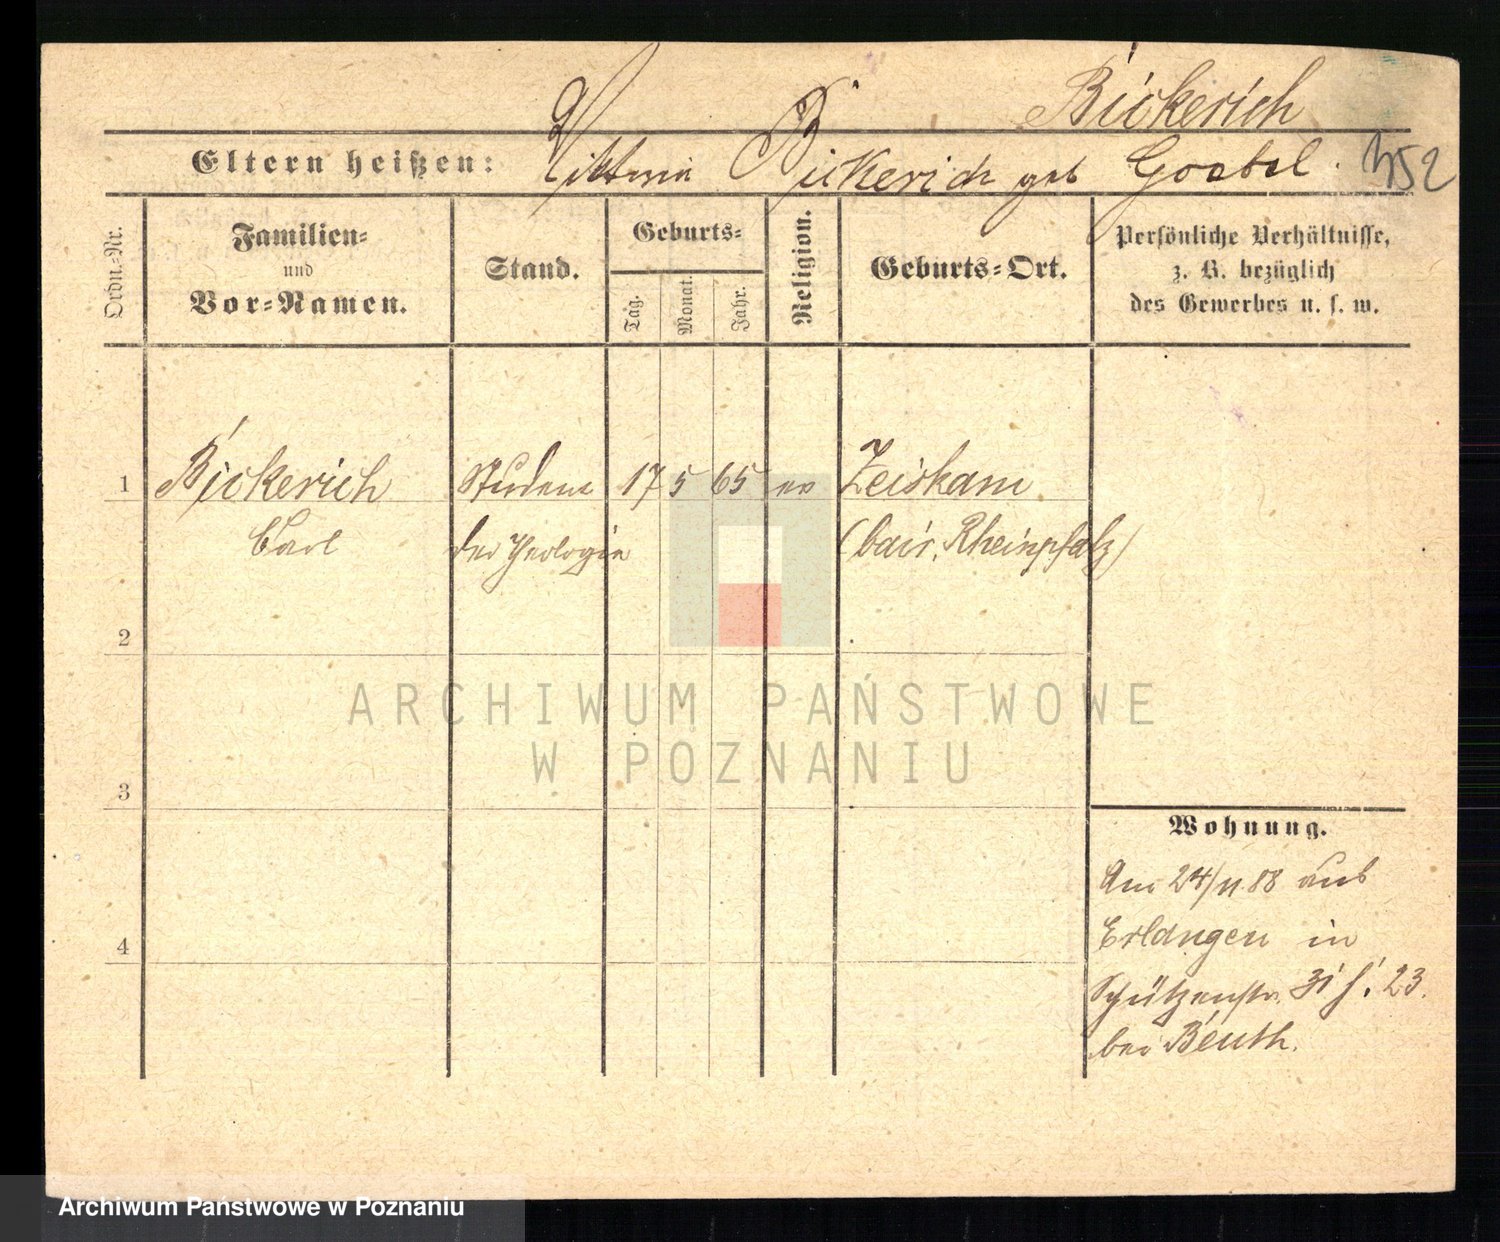 Bickerich
Eltern heißen: Viktoria Bickerich geb Goebel. 352
Ordn.-Nr.
Familien-
und
Vor-Namen.
Stand.
Geburts-
Tag.
Monat.
Jahr.
Religion.
Geburts-Ort.
Persönliche Verhältnisse,
z. B. bezüglich
des Gewerbes u. s. w.
1 Bickerich Student 17 5 65 ev Zeiskam
Carl der Theologie (bair. Rheinpfalz)
2
3
4
Wohnung.
Am 24/11.88 aus
Erlangen in
Schützenstr. 31 23.
bei Beuth.
ARCHIWUM PAŃSTWOWE
W POZNANIU
Archiwum Państwowe w Poznaniu